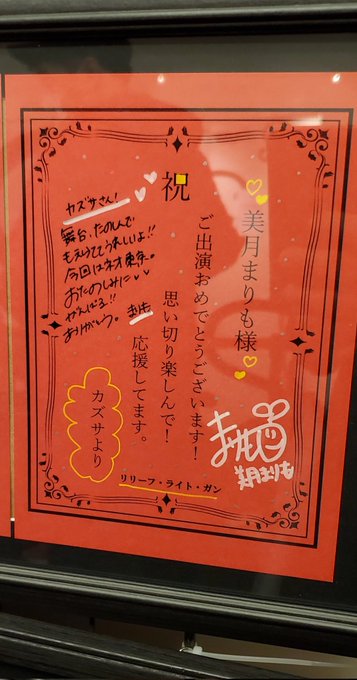 祝
美月まりも様
ご出演おめでとうございます！
思い切り楽しんで！
応援してます。
カズサより
リリーフ・ライト・ガン
カズサさん！
舞台、たのしんで
もらえててうれしいよ!!
今回はネオ東京。
おたのしみに
がんばる!!
ありがとう。
まりも
まりも
美月まりも